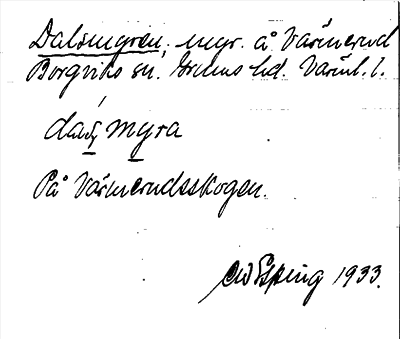 Dalsmyren, myr. å Värmerud
Borgviks sn. Grums hd. Värml. l.
daʃs̠ my̠ra
På Värmerudsskogen.
CW Esping 1933.